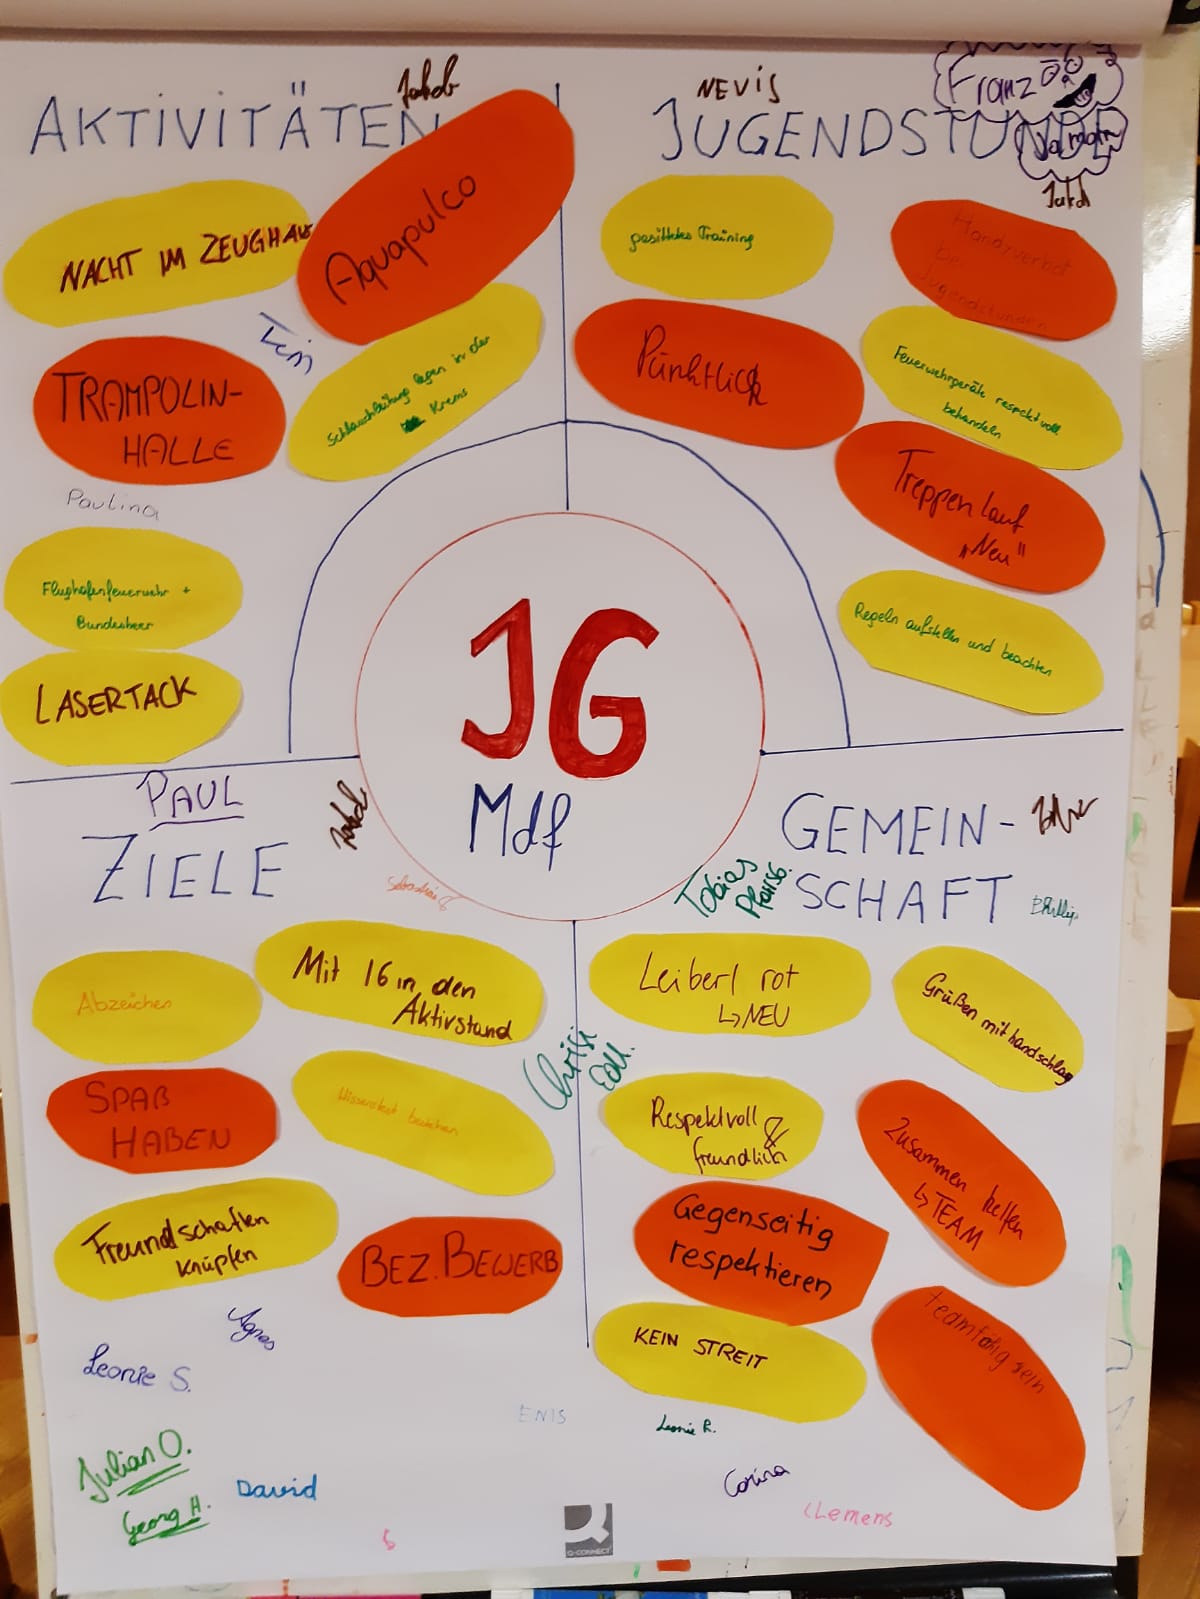 AKTIVITÄTEN
Jakob
NACHT IM ZEUGHAUS
Aquapulco
TRAMPOLIN-
HALLE
Schlauchleitung legen in der
Krems
Paulina
Flughafenfeuerwehr +
Bundesheer
LASERTACK
NEVIS
JUGENDSTUNDE
Franz
gesittetes Training
Handyverbot
bei
Jugendstunden
Pünktlich
Feuerwehrgeräte respektvoll
behandeln
Treppenlauf
"Neu"
Regeln aufstellen und beachten
JG
Mdf
PAUL
ZIELE
Abzeichen
Mit 16 in den
Aktivstand
SPAß
HABEN
Wissenstest bestehen
Freundschaften
knüpfen
BEZ. BEWERB
Agnes
Leonie S.
Julian O.
Georg H.
David
GEMEIN-
SCHAFT
Tobias
Leiberl rot
↳ NEU
Grüßen mit handschlag
Respektvoll &
freundlich
Zusammen helfen
↳ TEAM
Gegenseitig
respektieren
KEIN STREIT
teamfähig sein
ENIS
Leonie R.
Corina
Clemens
Q-CONNECT